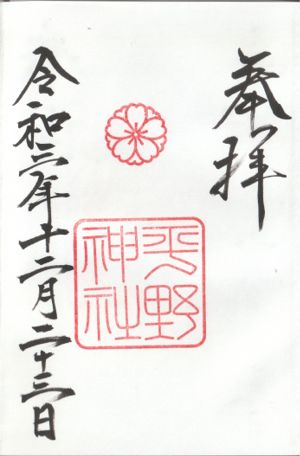 奉拝
平野
神社
令和二年十二月二十三日